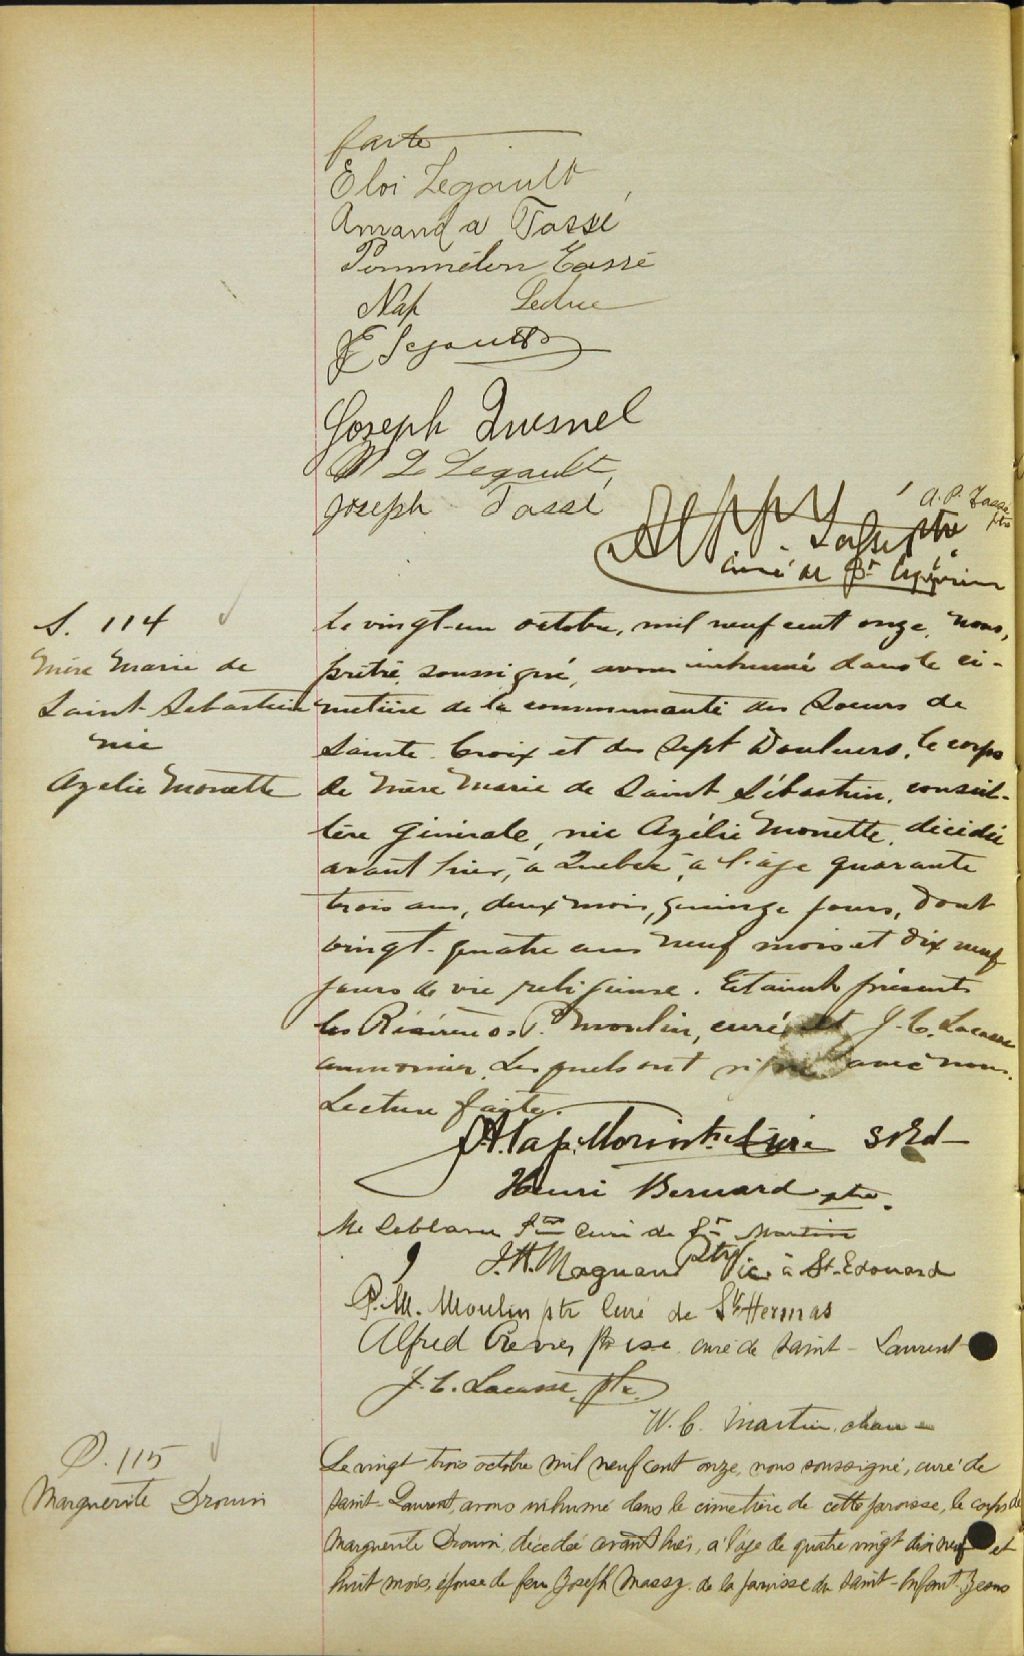 faite
Eloi Legault
Amanda Tassé
Pommélon Tassé
Nap Leduc
E Legault
Joseph Quesnel
Legault
Joseph Tassé
A. P. Tassé
ptre
ptre
curé de St Cyprien
S. 114
Mère Marie de
Saint Sébastien
née
Azélie Monette
Le vingt-un octobre, mil neuf cent onze, nous,
prêtre, soussigné, avons inhumé dans le ci-
metière de la communauté des Soeurs de
Sainte Croix et des Sept Douleurs, le corps
de Mère Marie de Saint Sébastien, conseil-
lère Générale, née Azélie Monette, décédée
avant hier, à Québec, à l'âge quarante
trois ans, deux mois, quinze jours, dont
vingt-quatre ans neuf mois et dix neuf
jours de vie religieuse. Étaient présents
les Révérends P. Moulin, curé, et J. C. Lacasse
aumonier, Lesquels ont signé avec nous.
Lecture faite.
Morin ptre Curé St Ed
Henri Bernard ptre.
M. Leblanc ptre Curé de St Martin
J. H. Magnan Ptre Vic. à St-Edouard
P. M. Moulin ptr Curé de St Hermas
Alfred ptre csc curé de Saint-Laurent
J. C. Lacasse, ptr.
W. C. Martin, chan
D. 115
Marguerite Drouin
Le vingt trois octobre mil neuf cent onze, nous soussigné, curé de
Saint-Laurent, avons inhumé dans le cimetière de cette paroisse, le corps de
Marguerite Drouin, décédée avant hier, à l'âge de quatre vingt dix neuf et
huit mois, épouse de feu Joseph Massy de la paroisse du Saint-Enfant-Jesus